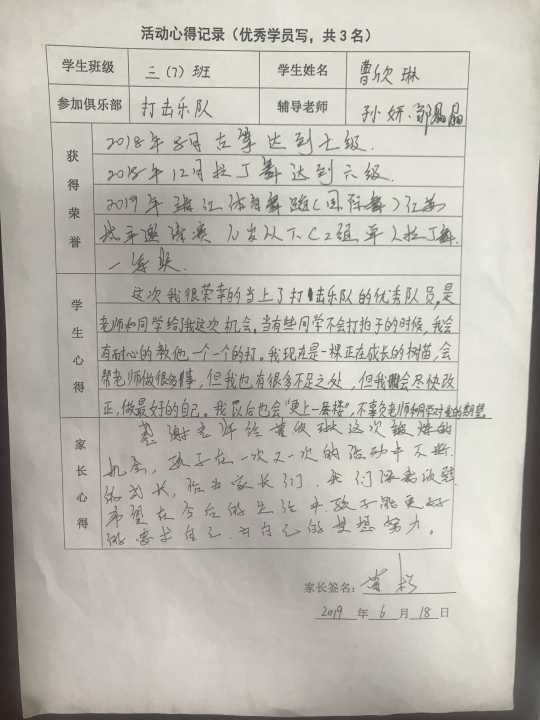 活动心得记录（优秀学员写，共3名）
学生班级 三（7）班 学生姓名 曹欣琳
参加俱乐部 打击乐队 辅导老师 孙妍、郭晶晶
获得荣誉
2018年8月古筝达到七级.
2018年12月拉丁舞达到六级.
2019年 体育舞蹈（国际舞）
10岁以下C2组单人拉丁舞.
一等奖
学生心得
这次我很荣幸的当上了打击乐队的优秀队员,是
老师和同学给了我这次机会,当有些同学不会打拍子的时候,我会
有耐心的教他,一个一个的打。我现在是一棵正在成长的树苗,会
帮老师做很多事,但我也有很多不足之处,但我会尽快改
正,做最好的自己。我以后也会“更上一层楼”,不辜负老师和同学对我的期望
家长心得
感谢老师给曹欣琳这次锻炼的
机会，孩子在一次又一次的活动中不断
的成长，作为家长们，我们
希望在今后的生活中孩子能更好
的 自己.为自己的梦想努力。
家长签名：曹
2019 年 6 月 18 日